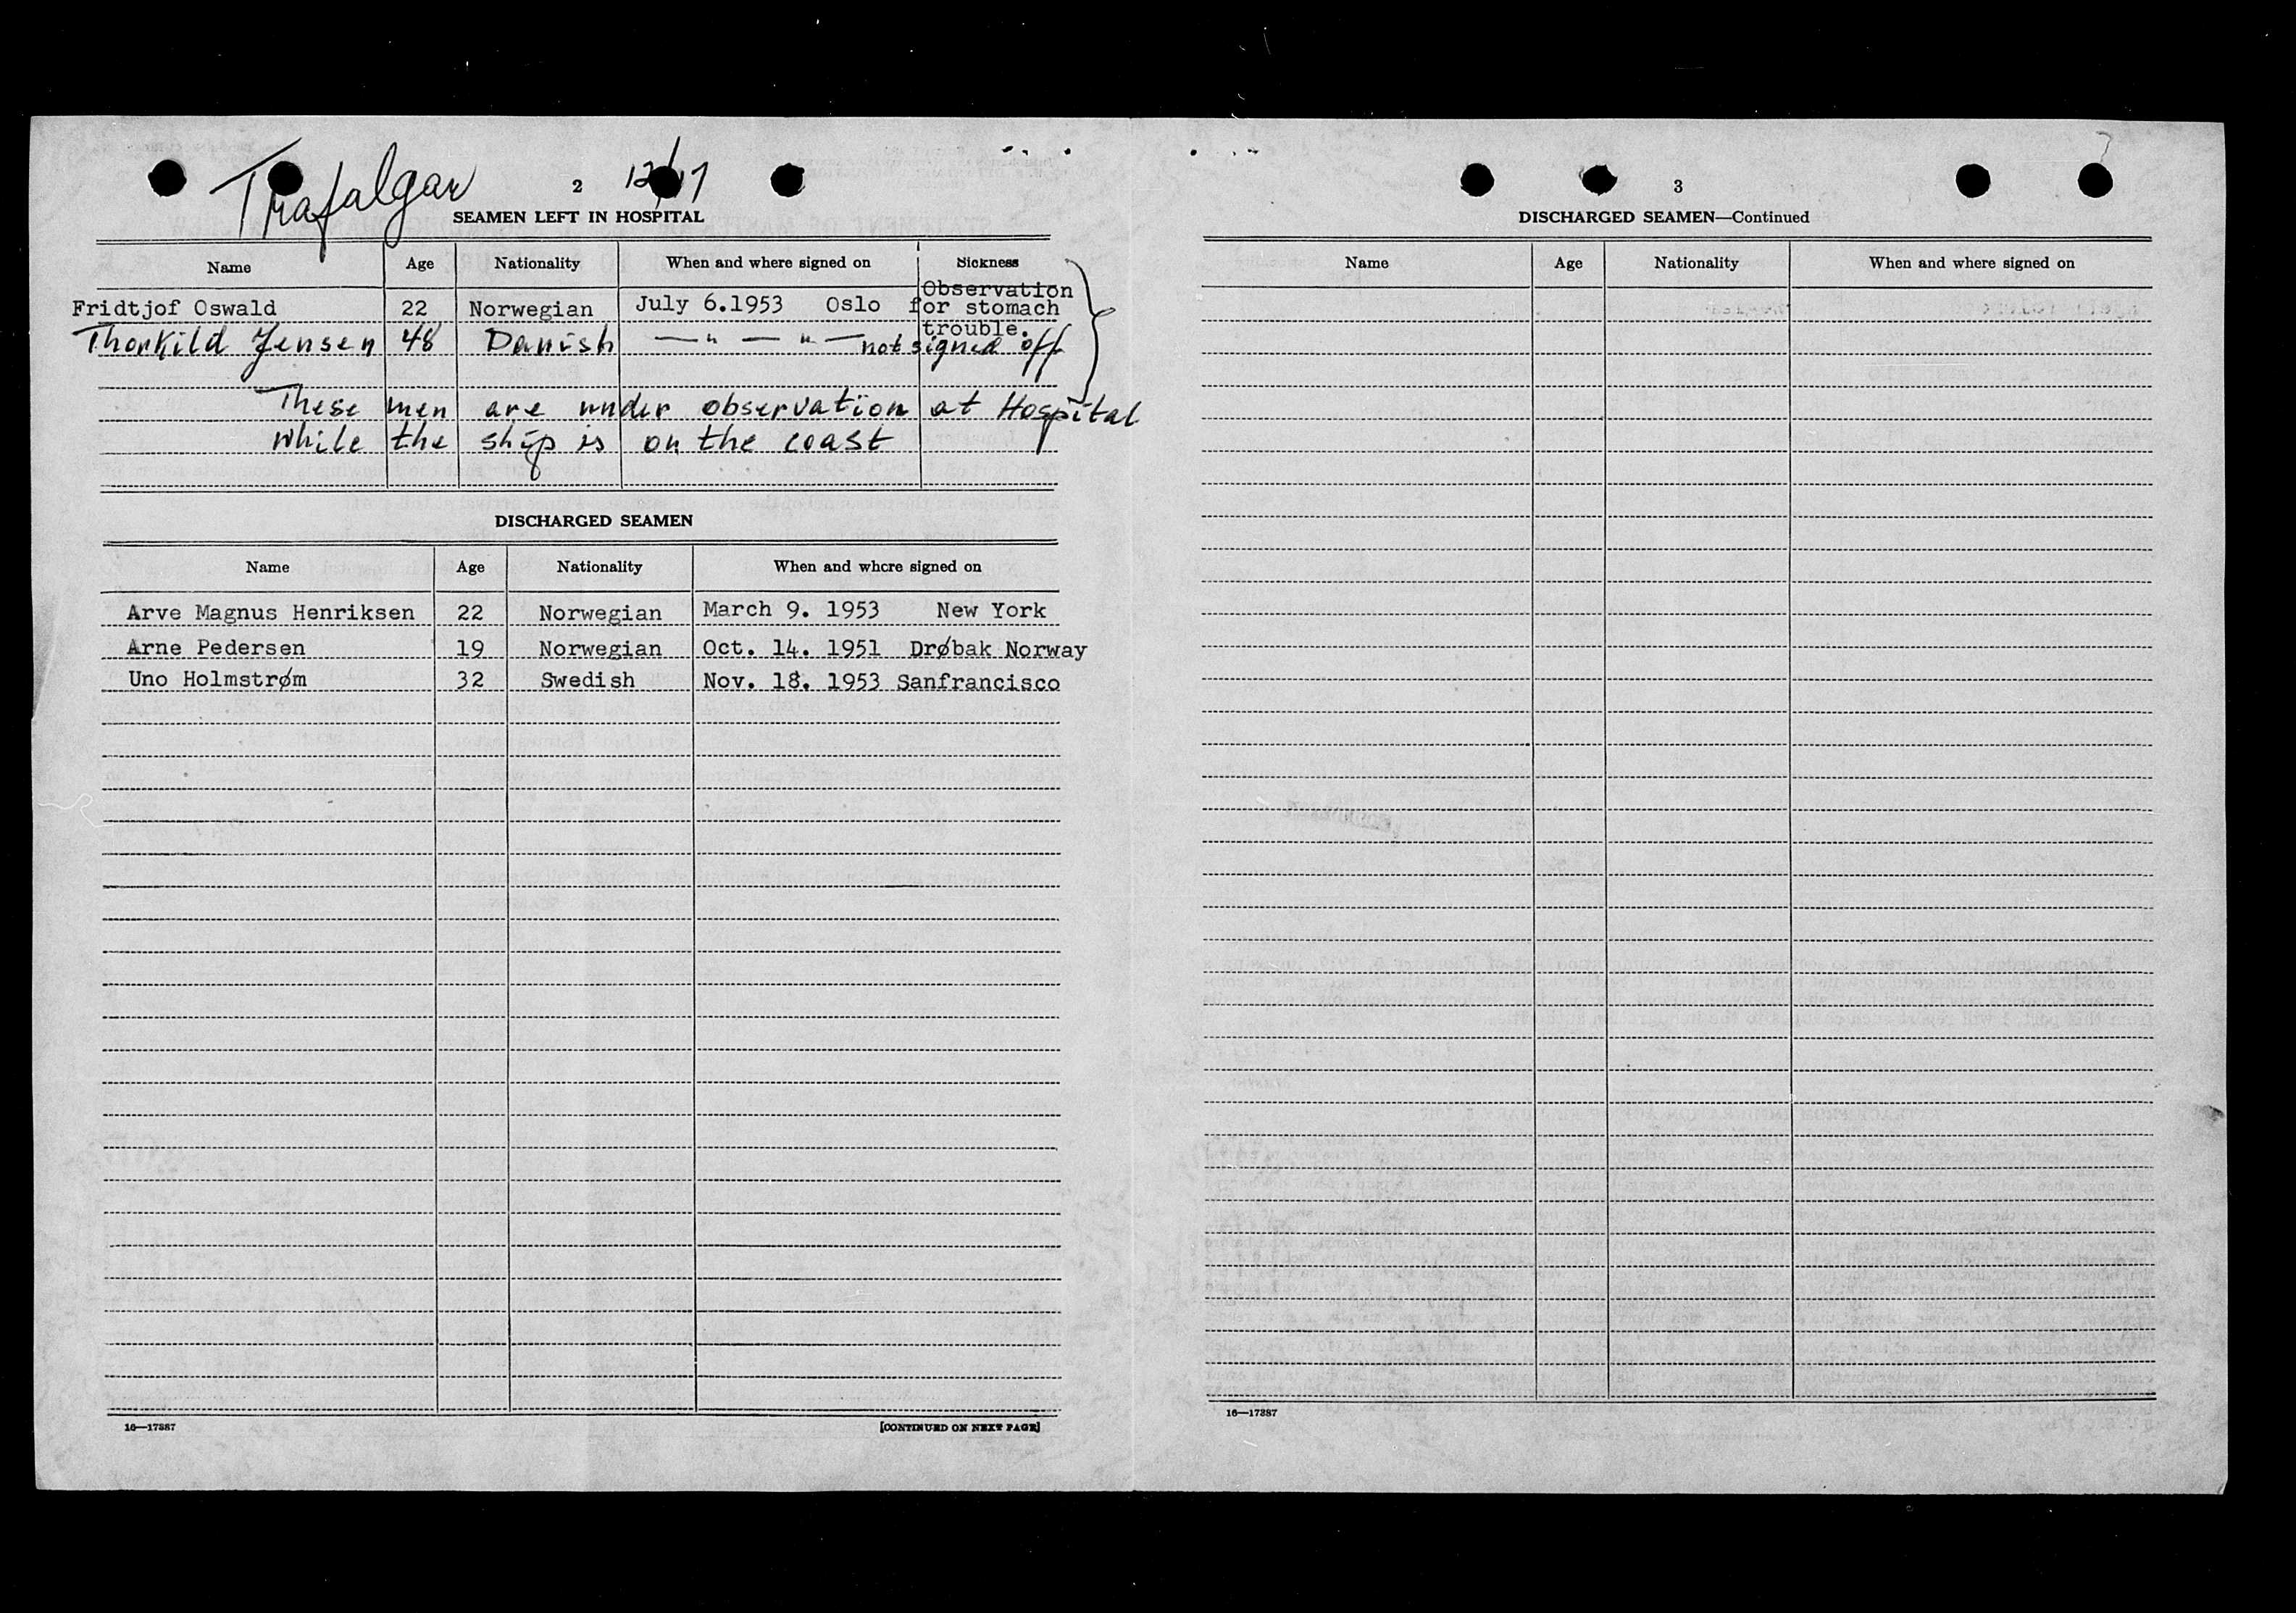 Trafalgar 2 12/17
SEAMEN LEFT IN HOSPITAL
Name Age Nationality When and where signed on Sickness
Fridtjof Oswald 22 Norwegian July 6.1953 Oslo Observation
for stomach
trouble.
Thorkild Jensen 48 Danish — " — " — not signed off
These men are under observation at Hospital
while the ship is on the coast
DISCHARGED SEAMEN
Name Age Nationality When and where signed on
Arve Magnus Henriksen 22 Norwegian March 9. 1953 New York
Arne Pedersen 19 Norwegian Oct. 14. 1951 Drøbak Norway
Uno Holmstrøm 32 Swedish Nov. 18. 1953 Sanfrancisco
16—17387 [CONTINUED ON NEXT PAGE]
3
DISCHARGED SEAMEN—Continued
Name Age Nationality When and where signed on
16—17387